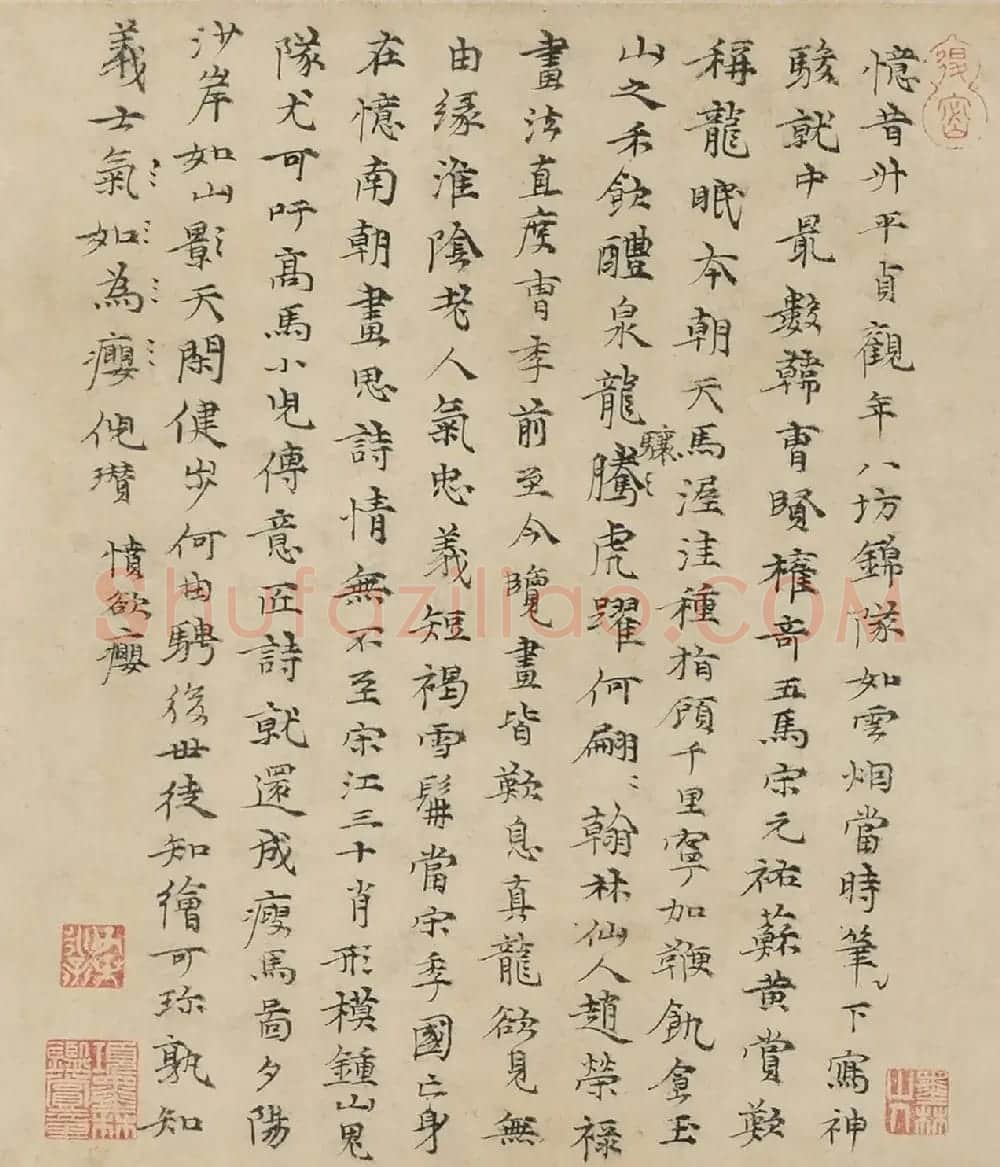 憶昔升平貞觀年八坊錦隊如雲烟當時筆下寫神
駿就中最數韓曹賢權奇五馬宋元祐蘇黃賞歎
稱龍眠本朝天馬渥洼種指顧千里寧加鞭飢食玉
山之禾飲醴泉龍騰虎躍何翩〻翰林仙人趙榮祿
驤
畫法直度曹李前至今覽畫皆歎息真龍欲見無
由緣淮陰老人氣忠義短褐雪髯當宋季國亡身
在憶南朝畫思詩情無不至宋江三十肖形模鍾山鬼
隊尤可吁高馬小兒傳意匠詩就還成瘦馬圖夕陽
沙岸如山影天閑健步何由騁後世徒知繪可珍孰知
義士氣如為癭倪瓚 憤欲癭
墨林山人
項墨林鑑賞章
Shufaziliao.COM